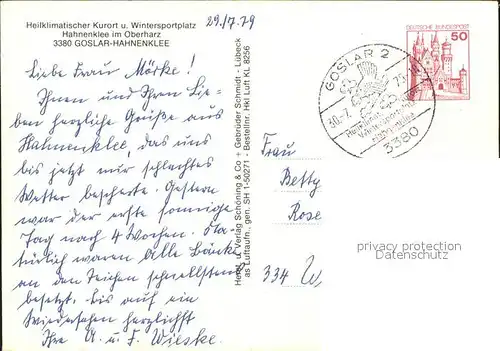 Heilklimatischer Kurort u. Wintersportplatz
Hahnenklee im Oberharz
3380 GOSLAR-HAHNENKLEE
29./7.79
Liebe Frau Mörke!
Ihnen und Ihren Lie-
ben herzliche Grüße aus
Hahnenklee, das uns
bis jetzt nur schlechtes
Wetter bescherte. Gestern
war der erste sonnige
Tag nach 4 Wochen. Na
türlich waren alle Bänke
an den Teichen schnellstens
besetzt. Bis auf ein
Wiedersehen herzlichst
Ihre A. u. F. Wieske.
Hersg. u. Verlag Schöning & Co + Gebrüder Schmidt · Lübeck
as Luftaufn., gen. SH 1-50271 - Bestellnr. Hkl Luft KL 8256
GOSLAR 2
30.-7.79
Heilklima
Wintersport
3380
DEUTSCHE BUNDESPOST
50
Frau
Betty
Rose
334 W
privacy protection
Datenschutz